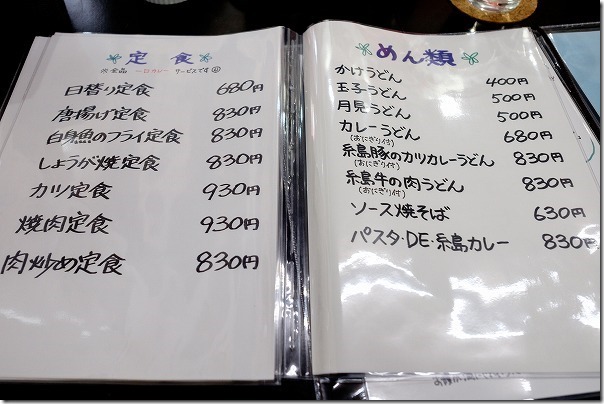 定食
※全品 一口カレー サービスです
日替り定食 680円
唐揚げ定食 830円
白身魚のフライ定食 830円
しょうが焼定食 830円
カツ定食 930円
焼肉定食 930円
肉炒め定食 830円
めん類
かけうどん 400円
玉子うどん 500円
月見うどん 500円
カレーうどん 680円
(おにぎり付)
糸島豚のカツカレーうどん 830円
(おにぎり付)
糸島牛の肉うどん 830円
(おにぎり付)
ソース焼そば 630円
パスタ・DE・糸島カレー 830円